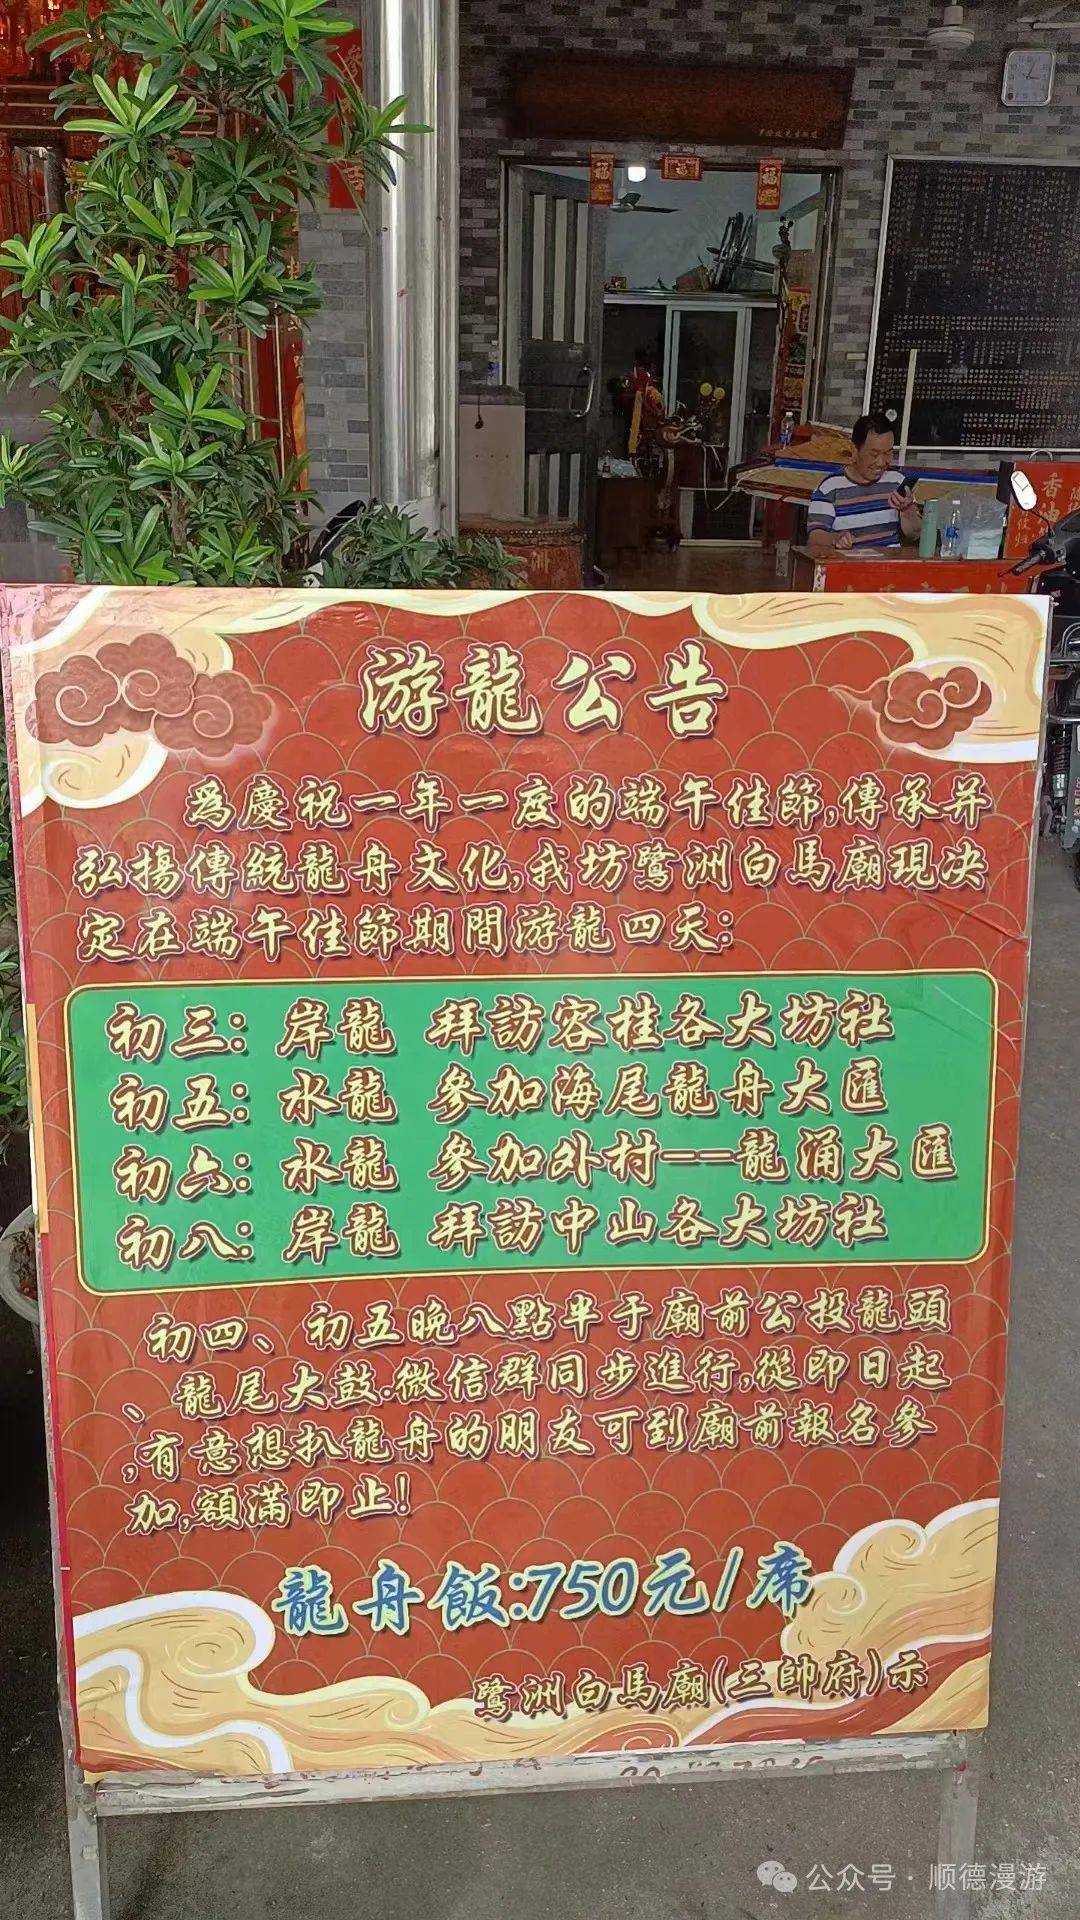 福
福
福
香油
游龍公告
爲慶祝一年一度的端午佳節,傳承并
弘揚傳統龍舟文化,我坊鷺洲白馬廟現决
定在端午佳節期間游龍四天:
初三: 岸龍 拜訪容桂各大坊社
初五: 水龍 參加海尾龍舟大匯
初六: 水龍 參加外村——龍涌大匯
初八: 岸龍 拜訪中山各大坊社
初四、初五晚八點半于廟前公投龍頭
、龍尾大鼓.微信群同步進行,從即日起
,有意想扒龍舟的朋友可到廟前報名參
加,額滿即止!
龍舟飯:750元/席
鷺洲白馬廟(三帥府)示
公众号·顺德漫游